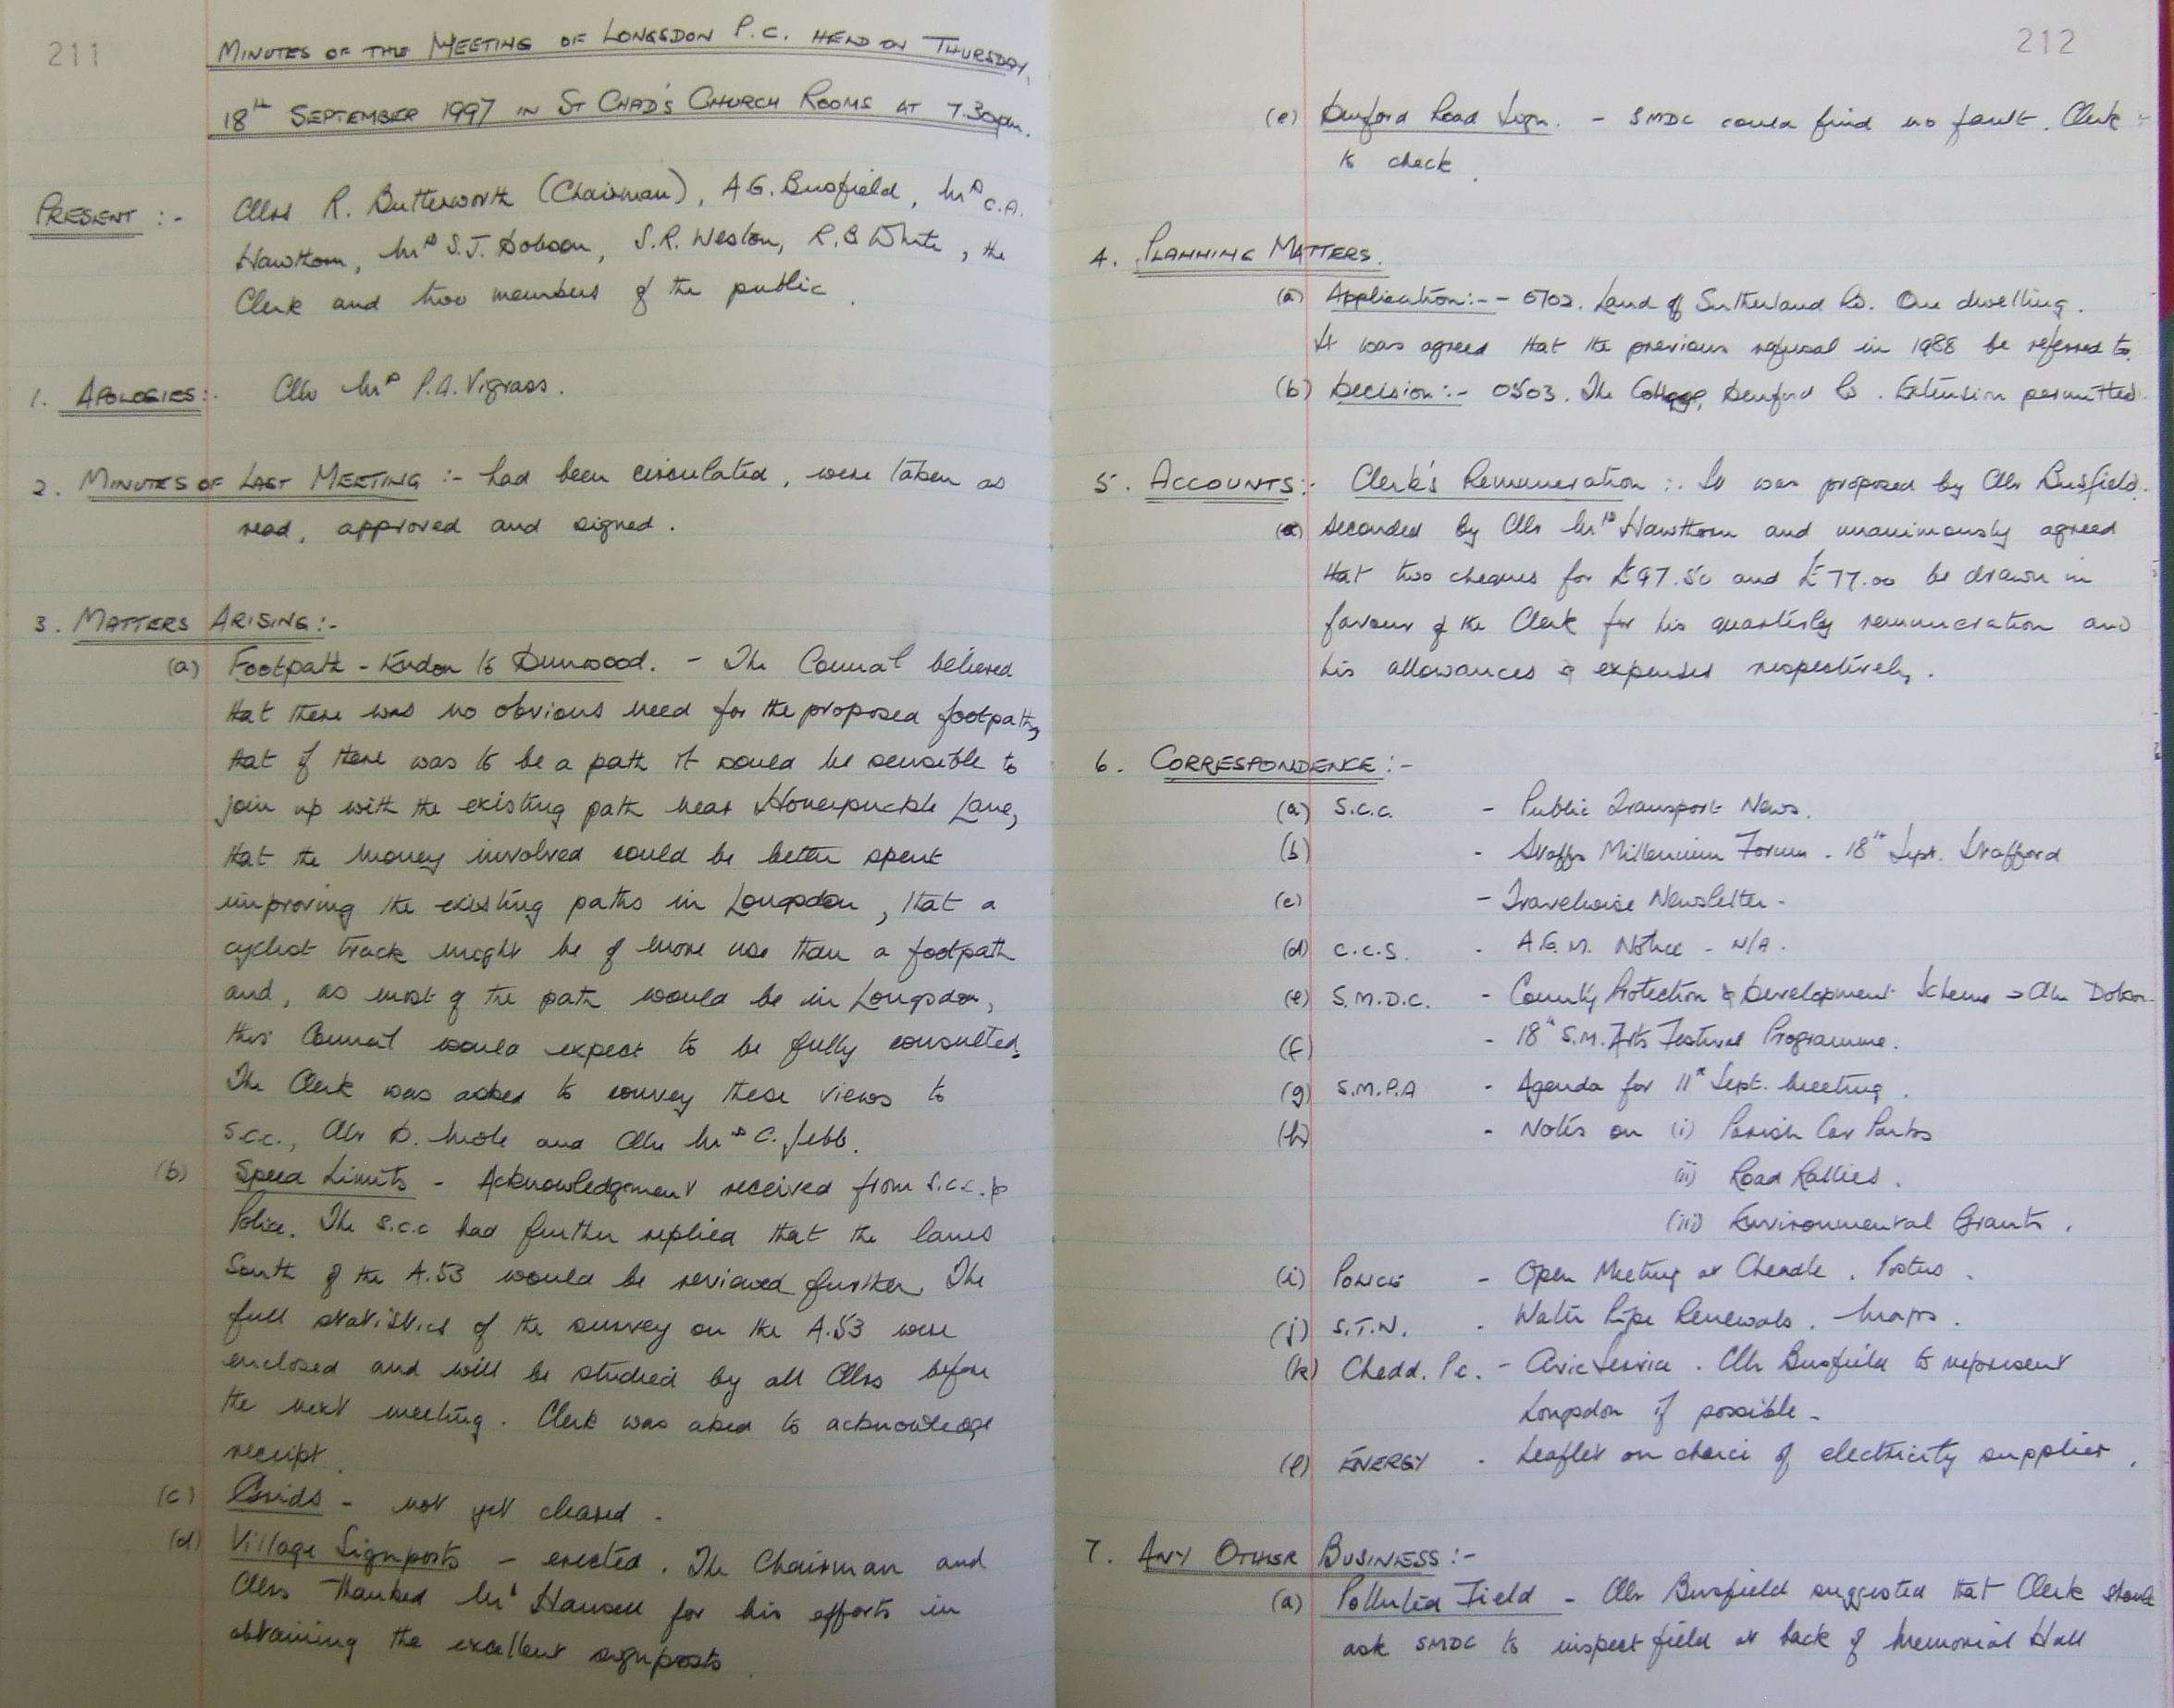 211
MINUTES OF THE MEETING OF LONGSDON P.C. HELD ON THURSDAY,
18th SEPTEMBER 1997 IN ST CHAD'S CHURCH ROOMS AT 7.30pm.
PRESENT :- Cllrs R. Butterworth (Chairman), A.G. Busfield, Mrs C.A.
Hawthorn, Mrs S.J. Dobson, S.R. Weston, R.B White, the
Clerk and two members of the public.
1. APOLOGIES:- Cllr Mrs P.A. Vigrass.
2. MINUTES OF LAST MEETING :- had been circulated, were taken as
read, approved and signed.
3. MATTERS ARISING:-
(a) Footpath - Endon to Dunwood. - The Council believed
that there was no obvious need for the proposed footpath,
that if there was to be a path it would be sensible to
join up with the existing path near Honeysuckle Lane,
that the money involved could be better spent
improving the existing paths in Longsdon, that a
cyclist track might be of more use than a footpath
and, as most of the path would be in Longsdon,
this Council would expect to be fully consulted.
The Clerk was asked to convey these views to
S.C.C., Cllr D. and Cllr Mrs C. Jebb.
(b) Speed Limits - Acknowledgement received from S.C.C.
Police. The S.C.C had further replied that the lanes
South of the A.53 would be reviewed further. The
full statistics of the survey on the A.53 were
enclosed and will be studied by all Cllrs before
the next meeting. Clerk was asked to acknowledge
receipt.
(c) Grids - not yet cleared.
(d) Village Signposts - erected. The Chairman and
Cllrs thanked Mr Hansell for his efforts in
obtaining the excellent signposts.
212
(e) Denford Road Sign. - SMDC could find no fault. Clerk
to check.
4. PLANNING MATTERS.
(a) Application:- - 0702. Land of Sutherland Rd. One dwelling.
It was agreed that the previous refusal in 1988 be referred to.
(b) Decision:- 0503. The Cottage, Denford Rd. Extension permitted.
5. ACCOUNTS:- Clerk's Remuneration :- It was proposed by Cllr Busfield,
(a) seconded by Cllr Mrs Hawthorn and unanimously agreed
that two cheques for £97.50 and £77.00 be drawn in
favour of the Clerk for his quarterly remuneration and
his allowances & expenses respectively.
6. CORRESPONDENCE :-
(a) S.C.C. - Public Transport News.
(b) - Staffs Millennium Forum - 18th Sept. Stafford
(c) - Travelwise Newsletter -
(d) C.C.S. - A.G.M. Notice - N/A.
(e) S.M.D.C. - County Protection & Development Scheme → Cllr Dobson
(f) - 18th S.M. Arts Festival Programme.
(g) S.M.P.A - Agenda for 11th Sept. Meeting.
(h) - Notes on (i) Parish Car Parks
(ii) Road Rallies.
(iii) Environmental Grants.
(i) POLICE - Open Meeting at Cheadle. Posters.
(j) S.T.W. - Water Pipe Renewals. Maps.
(k) Chedd. P.C. - Civic Service. Cllr Busfield to represent
Longsdon if possible -
(l) ENERGY - Leaflet on choice of electricity supplier.
7. ANY OTHER BUSINESS :-
(a) Polluted Field - Cllr Busfield suggested that Clerk should
ask SMDC to inspect field at back of Memorial Hall